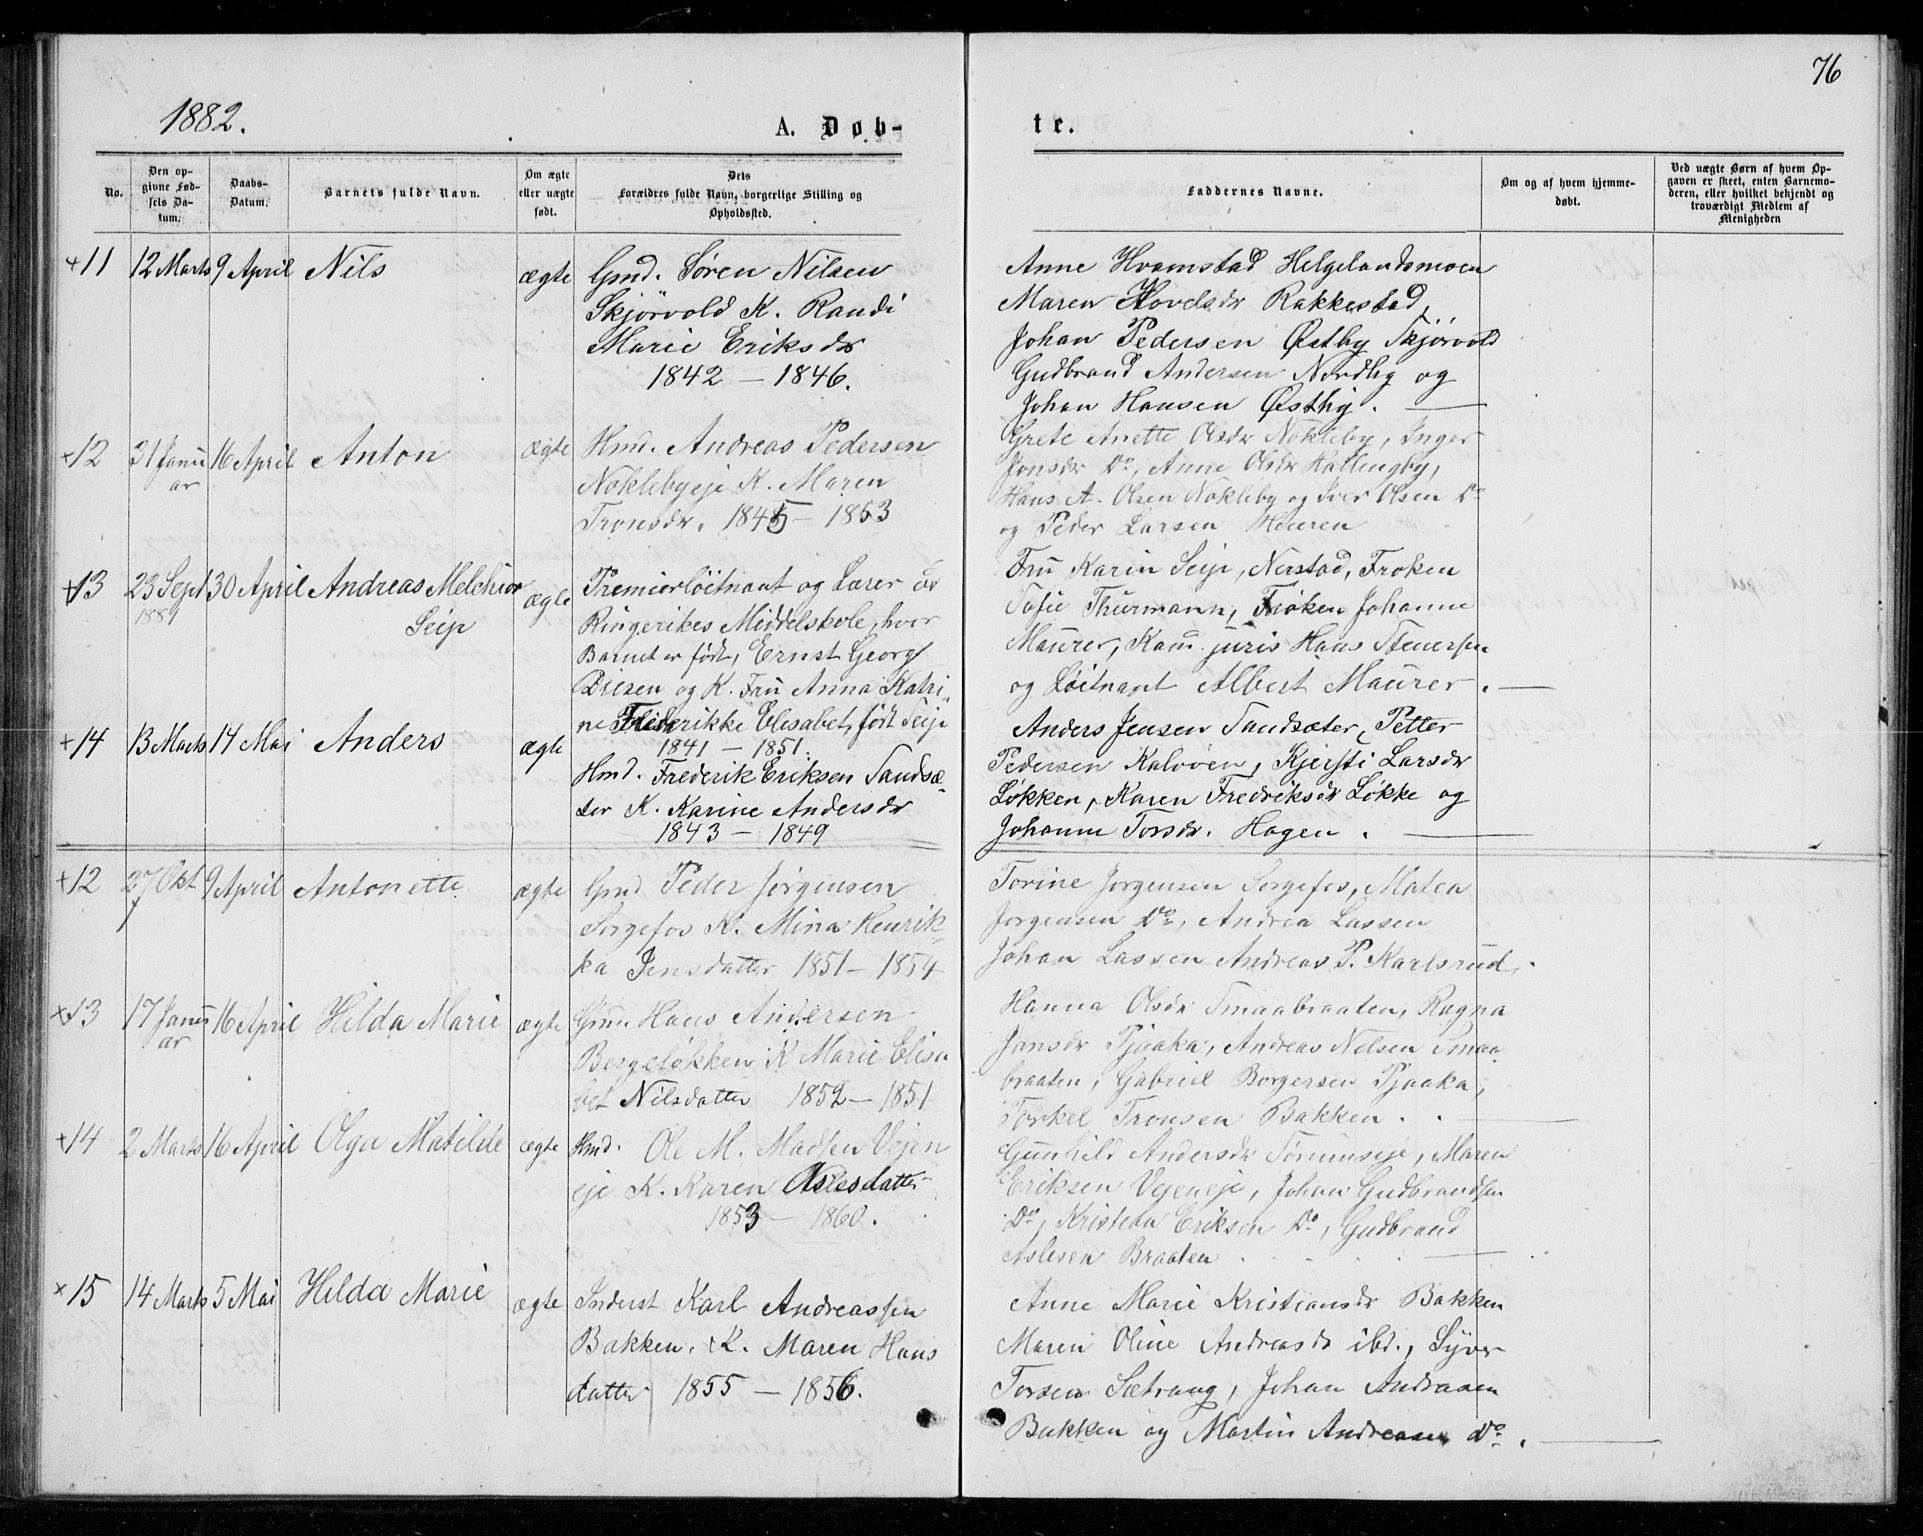 76
1882.
A. Døb-
te.
No.
Den op-
givne Fød-
sels Da-
tum.
Daabs-
Datum.
Barnets fulde Navn.
Om ægte
eller uægte
født.
Dets
Forældres fulde Navn, borgerlige Stilling og
Opholdssted.
Faddernes Navne.
Om og af hvem hjemme-
døbt.
Ved uægte Børn af hvem Op-
gaven er skeet, enten Barnemo-
deren, eller hvilket bekjendt og
troværdigt Medlem af
Menigheden
+11 12 Marts 9 April Nils ægte Gmd. Søren Nilsen
Skjørvold K. Randi
Marie Eriksdr
1842 – 1846.
Anne Hvamstad Helgelandsmoen
Maren Hovelsdr Rakkestad,
Johan Pedersen Østby Skjørvold
Gudbrand Andersen Nordby og
Johan Hansen Østby.
+12 31 Janu
ar 16 April Anton ægte Hmd. Andreas Pedersen
Noklebyeje K. Maren
Tronsdr. 1845 – 1853
Grete Anette Olsdr Nokleby, Inger
Jonsdr Do, Anne Olsdr Hallingby,
Hans A. Olsen Nokleby og Iver Olsen Do
og Peder Larsen Heieren
+13 23 Sept
1881 30 April Andreas Melchior
Seip ægte Premierløitnant og Lærer ved
Ringerikes Middelskole, hvor
Barnet er født, Ernst Georg
Driesen og K. Fru Anna Katri-
ne Frederikke Elisabet, født Seip
1841 – 1851.
Fru Karin Seip, Nerstad, Froken
Sofie Thurmann, Frøken Johanne
Maurer, Kand. juris Hans Steuersen
og Løitnant Albert Maurer.
+14 13 Marts 14 Mai Anders ægte Hmd. Frederik Eriksen Sandsæ-
ter K. Karine Andersdr
1843 – 1849
Anders Jensen Sandsæter, Petter
Pedersen Kaloven, Kjersti Larsdr
Løkken, Karen Fredriksdr Løkke og
Johanne Torsdr. Hagen.
+12 27 Okt 9 April Antonette. ægte Gmd Peder Jørgensen
Sorgefos K. Mina Henrik-
ka Jensdatter 1851 – 1854
Torine Jorgensen Sorgefos, Matea
Jorgensen Do, Andrea Lassen
Johan Lassen Andreas P. Karlsrud.
+13 17 Janu
ar 16 April Hilda Marie ægte Gmd. Hans Andersen
Bergeløkken K Marie Elisa
bet Nilsdatter 1852 – 1851
Hanna Olsdr Smaabraaten, Ragna
Jansdr Pjaaka, Andreas Nilsen Smaa
braaten, Gabriel Borgersen Pjaaka,
Torkel Tronsen Bakken.
+14 2 Marts 16 April Olga Matilde ægte Hmd. Ole M. Madsen Vejen
eje K. Karen Aslesdatter
1853 – 1860.
Gunhild Andersdr Tørumseje, Maren
Eriksen Vejeneje, Johan Gudbrandsen
Do, Kristian Eriksen Do, Gudbrand
Aslesen Braaten
×15 14 Marts 5 Mai Hilda Marie ægte Inderst Karl Andreassen
Bakken. K. Maren Hans
datter 1855 – 1856.
Anne Marie Kristiansdr Bakken
Maren Oline Andreasdr ibd., Syver
Torsen Sætrang, Johan Andrasen
Bakken og Martin Andreasen Do.